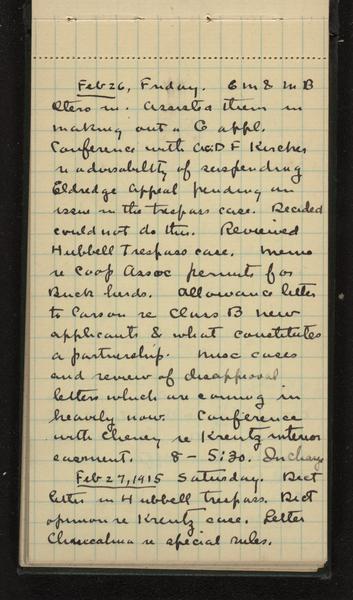 Feb 26, Friday. E M & M B
Otero in. Assisted them in
making out a G appl.
Conference with A&DF Kircher
re advisability of suspending
Eldredge appeal pending an
issue in the trespass case. Decided
could not do this. Reviewed
Hubbell Trespass case. Memo
re Coop Assoc permits for
Buck herds. Allowance letter
to Carson re Class B new
applicants & what constitutes
a partnership. Misc cases
and review of disapproval
letters which are coming in
heavily now. Conference
with Cheney re Kreutz interior
easement. 8 - 5:30. In charge
Feb 27, 1915 Saturday. Dict
letter in Hubbell trespass. Dict
opinion re Kreutz case. Letter
re special rules.